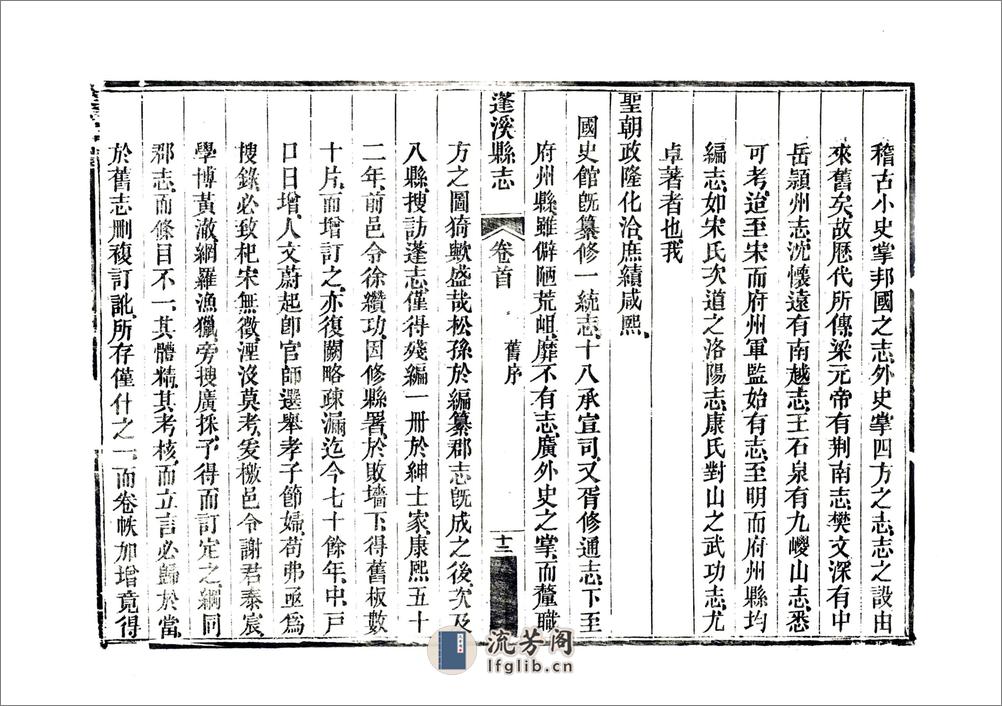 稽古小史掌邦國之志外史掌四方之志志之設由
來舊矣故歷代所傳梁元帝有荆南志樊文深有中
岳潁州志沈懷遠有南越志王石泉有九嵕山志悉
可考迨至宋而府州軍監始有志至明而府州縣均
編志如宋氏次道之洛陽志康氏對山之武功志尤
卓著者也我
聖朝政隆化洽庶績咸熙
國史館旣纂修一統志十八承宣司又胥修通志下至
府州縣雖僻陋荒岨靡不有志廣外史之掌而釐職
蓬溪縣志
卷首
舊序
十三
方之圖猗歟盛哉松孫於編纂郡志旣成之後次及
八縣搜訪蓬志僅得殘編一冊於紳士家康熙五十
二年前邑令徐纘功因修縣署於敗墻下得舊板數
十片而增訂之亦復闕略疎漏迄今七十餘年中戸
口日增人文蔚起卽官師選舉孝子節婦苟弗亟爲
搜錄必致杞宋無徵湮沒莫考爰檄邑令謝君泰宸
學博黃澈網羅漁獵旁搜廣採予得而訂定之綱同
郡志而條目不一其體精其考核而立言必歸於當
於舊志删複訂訛所存僅什之一而卷帙加增竟得
流芳阁
lfglib.cn